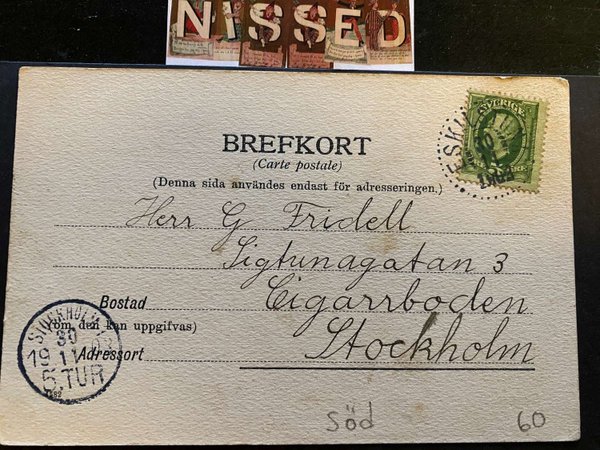 NISSED
SVERIGE
BREFKORT
(Carte postale)
(Denna sida användes endast för adresseringen.)
Herr G Fridell
Sigtunagatan 3
Bostad Cigarrboden
(om den kan uppgifvas)
Adressort Stockholm
STOCKHOLM
30
19 11 03
5.TUR
Söd 60